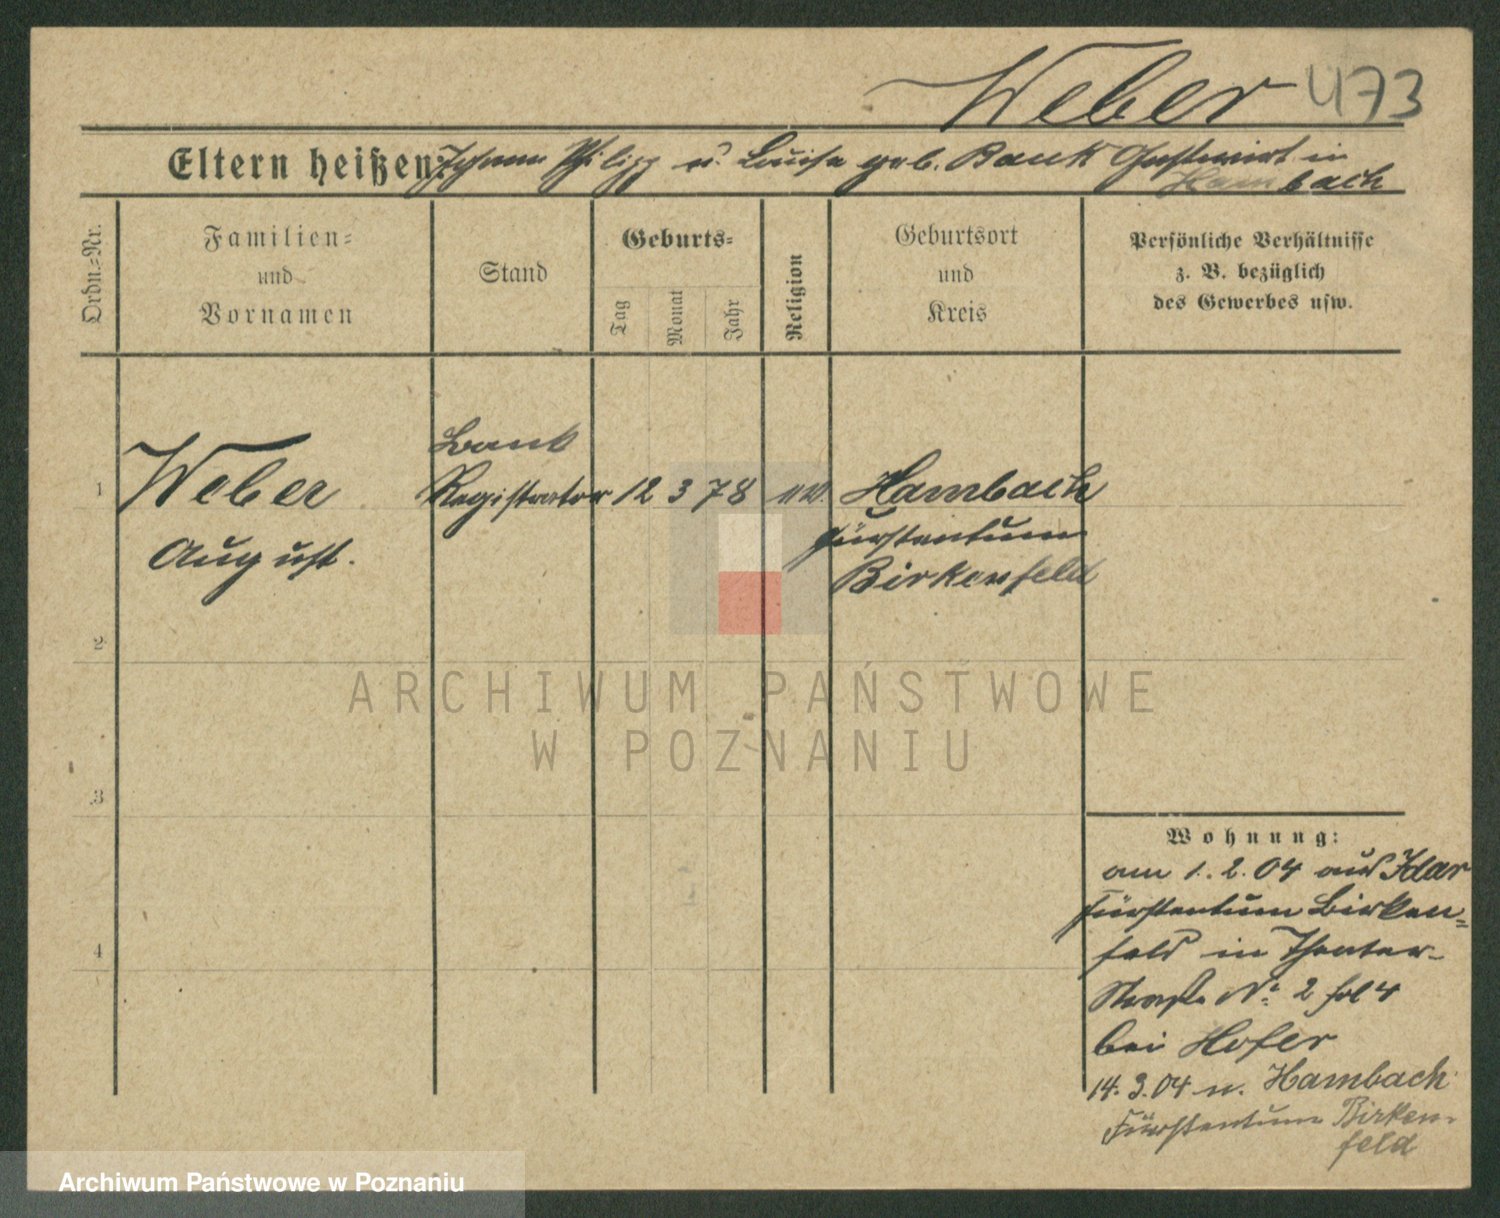 Weber 473
Eltern heißen: Johann Philipp u. Luise geb. Bank Gastwirt in
Hambach
Ordn.=Nr.
Familien=
und
Vornamen
Stand
Geburts=
Tag
Monat
Jahr
Religion
Geburtsort
und
Kreis
Persönliche Verhältnisse
z. B. bezüglich
des Gewerbes usw.
1
Weber
August.
Bank
Registrator
12 3 78
ev.
Hambach
Fürstentum
Birkenfeld
2
3
4
ARCHIWUM PAŃSTWOWE
W POZNANIU
Wohnung:
am 1.2.04 aus Idar
Fürstentum Birken=
feld in Theater-
Straße No. 2 4
bei Hofer
14.3.04 n. Hambach
Fürstentum Birken-
feld
Archiwum Państwowe w Poznaniu